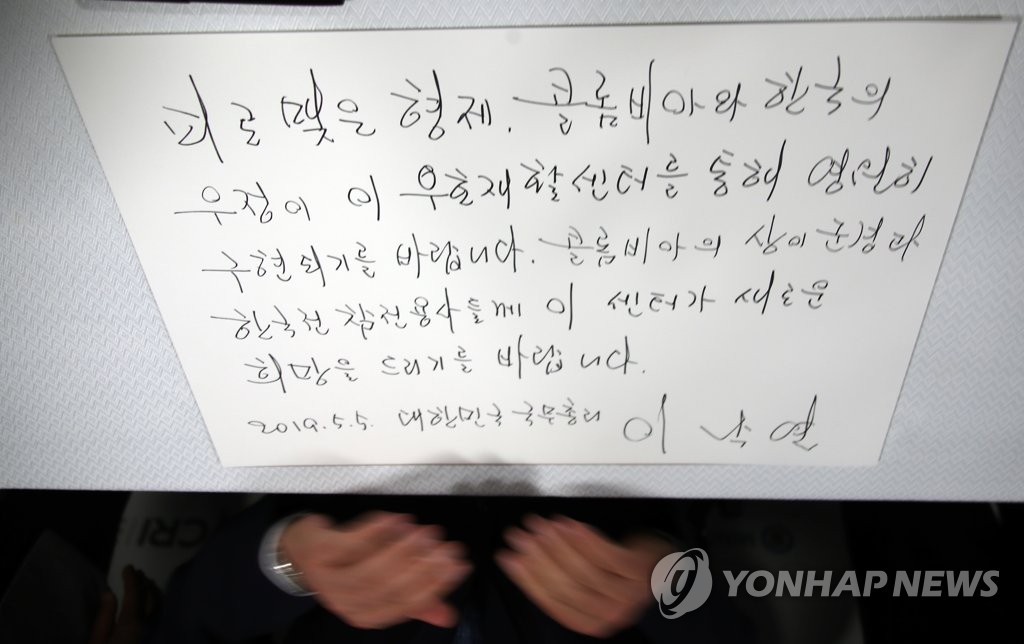 피로 맺은 형제. 콜롬비아와 한국의
우정이 이 우호재활센터를 통해 영원히
구현되기를 바랍니다. 콜롬비아의 상이군경과
한국전 참전용사들께 이 센터가 새로운
희망을 드리기를 바랍니다.
2019.5.5. 대한민국 국무총리 이낙연
CRI
YONHAP NEWS